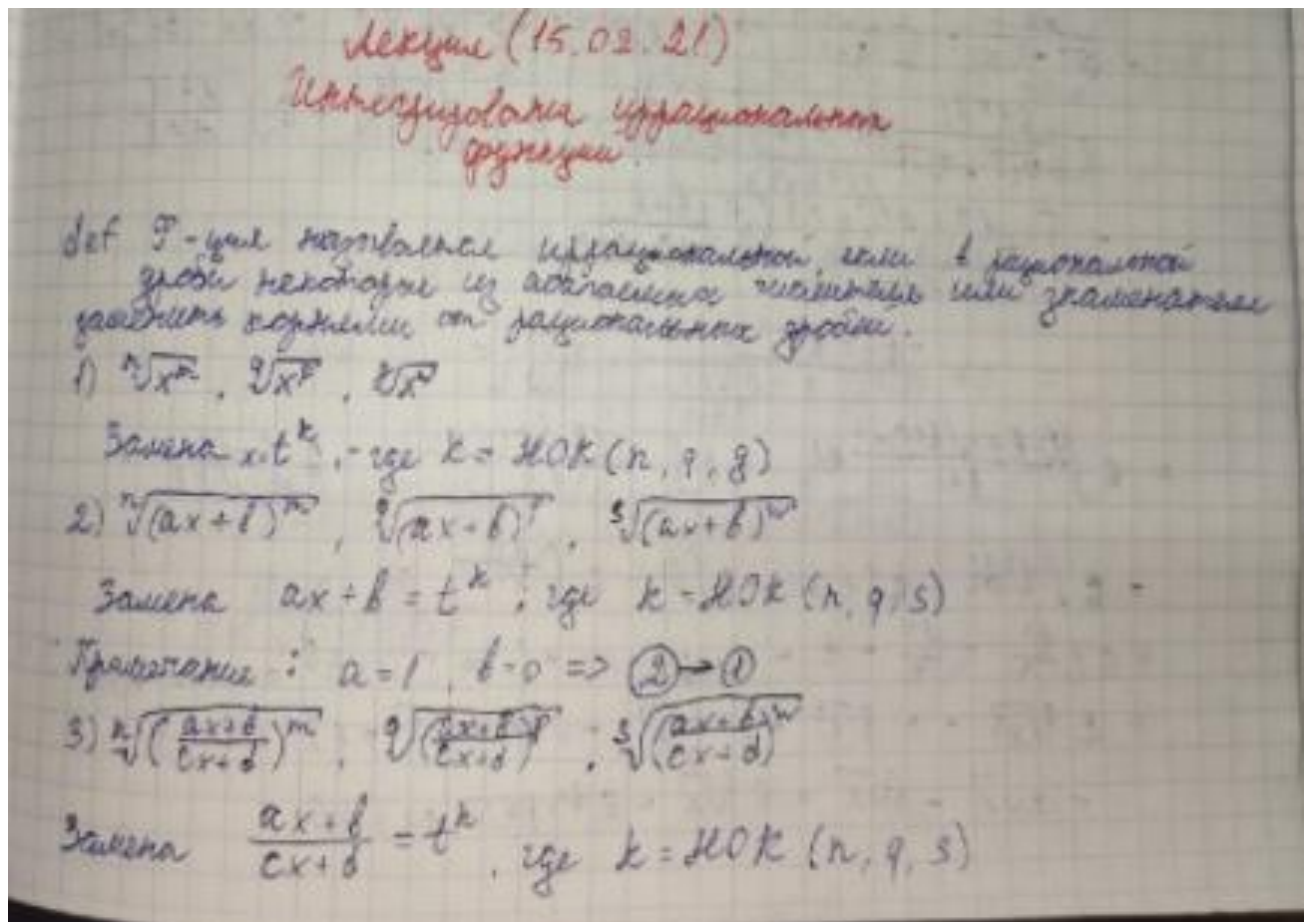 Лекция (15.02.21)
Интегрирование иррациональных
функции.
def Ф-ция называется иррациональной, если в рациональной
дроби некоторые из слагаемых числителя или знаменателя
заменить корнями от рациональных дробей.
1) ⁿ√x^m, ^q√x^p, √x
Замена x=t^k, где k = НОК (n, q, g)
2) ⁿ√(ax+b)^m, ^q√(ax+b), ^s√(ax+b)^w
Замена ax+b = t^k, где k = НОК (n, q, s)
Примечание: a=1, b=0 => ②→①
3) ⁿ√((ax+b)/(cx+d))^m, ^q√((ax+b)/(cx+d)), ^s√((ax+b)/(cx+d))^w
Замена (ax+b)/(cx+d) = t^k, где k = НОК (n, q, s)